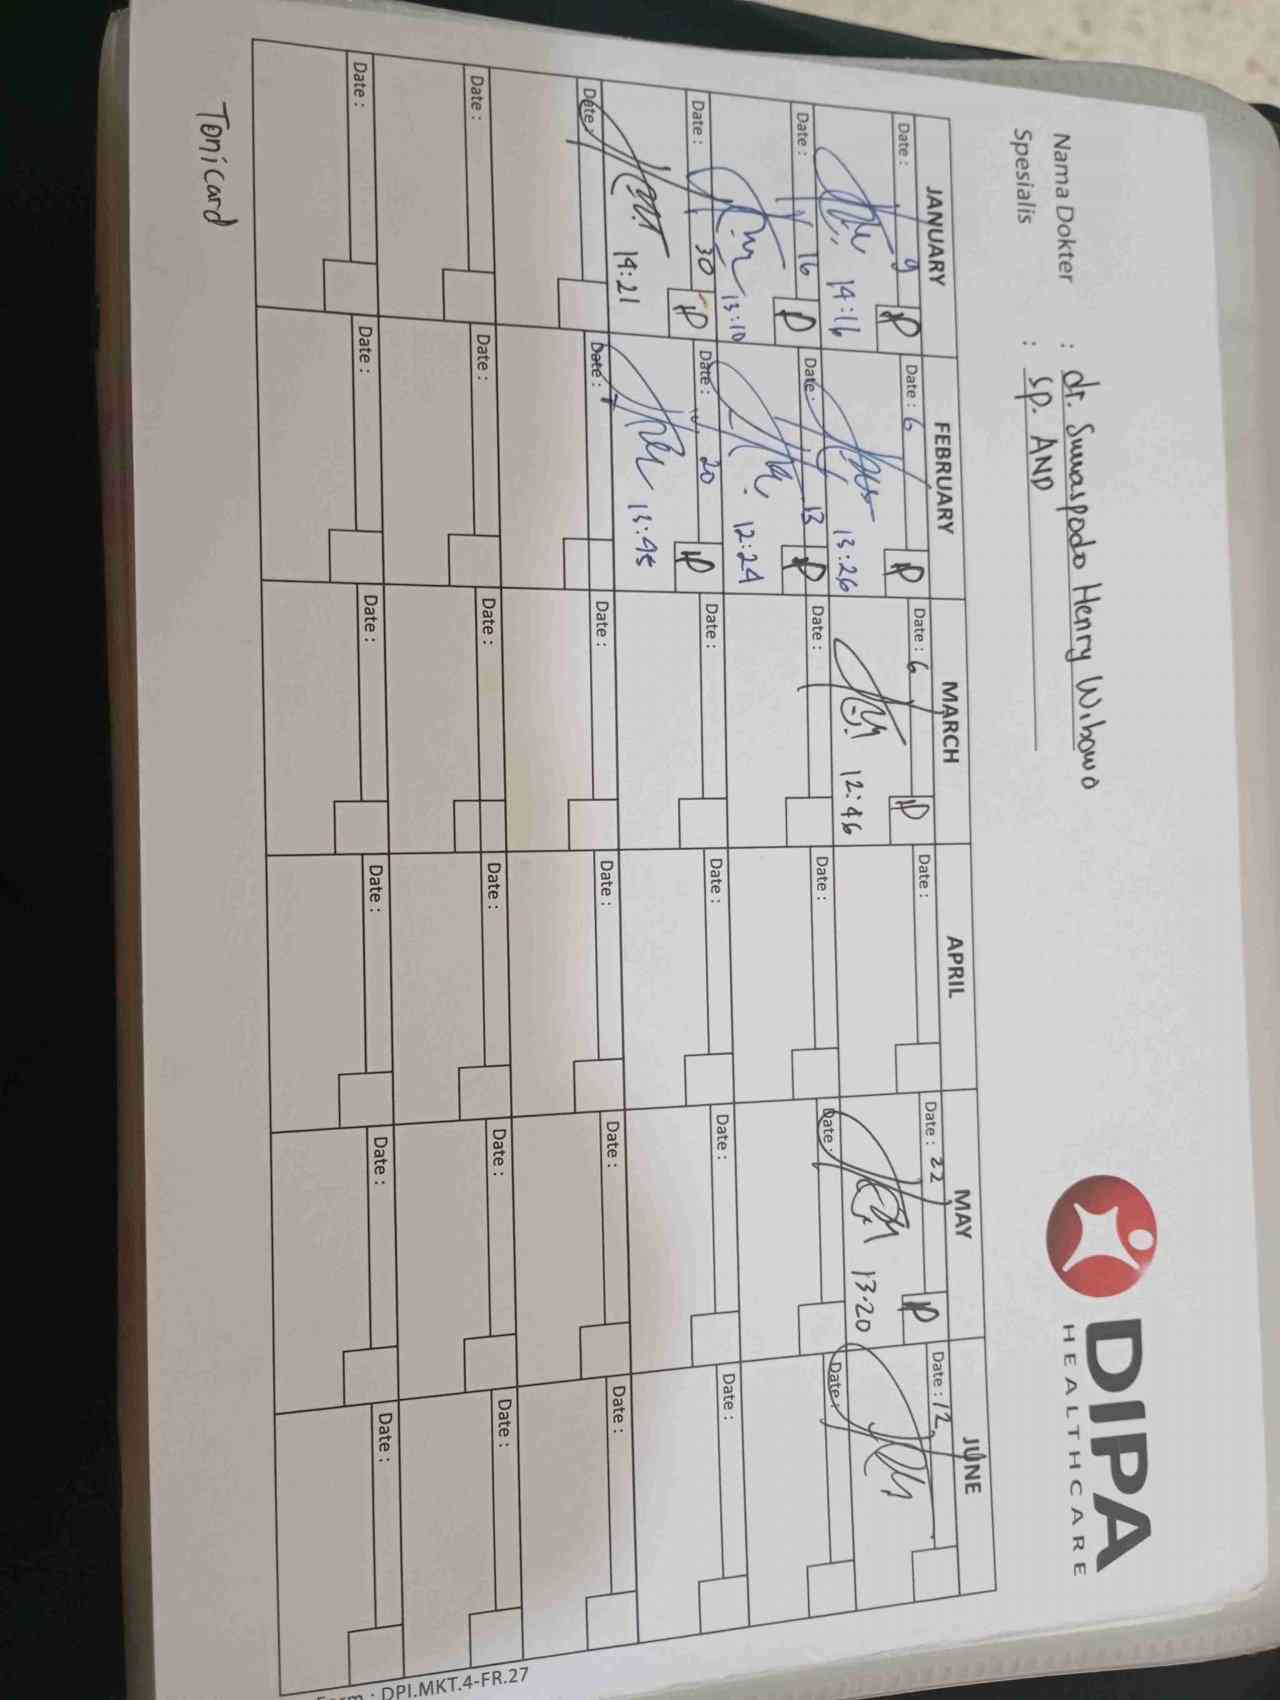 DIPA
HEALTHCARE
Nama Dokter : dr. Suwaspodo Henry Wibowo
Spesialis : Sp. AND
JANUARY FEBRUARY MARCH APRIL MAY JUNE
Date : 9 Date : 6 Date : 6 Date : Date : 22 Date : 12
14:16 13:26 12:46 13.20
Date : 16 Date : 13 Date : Date : Date : Date :
13:10 12:24
Date : 30 Date : 20 Date : Date : Date : Date :
14:21 13:45
Date : Date : Date : Date : Date : Date :
Date : Date : Date : Date : Date : Date :
Date : Date : Date : Date : Date : Date :
Tonicard
Form : DPI.MKT.4-FR.27